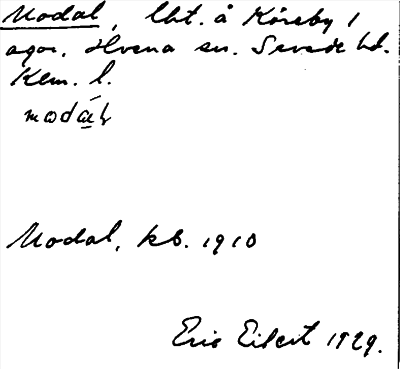 Modal, lht. å Kåreby 1
agor. Hvena sn. Sevede hd.
Klm. l.
modáḷ
Modal, kb. 1910
Eric Eilert 1929.